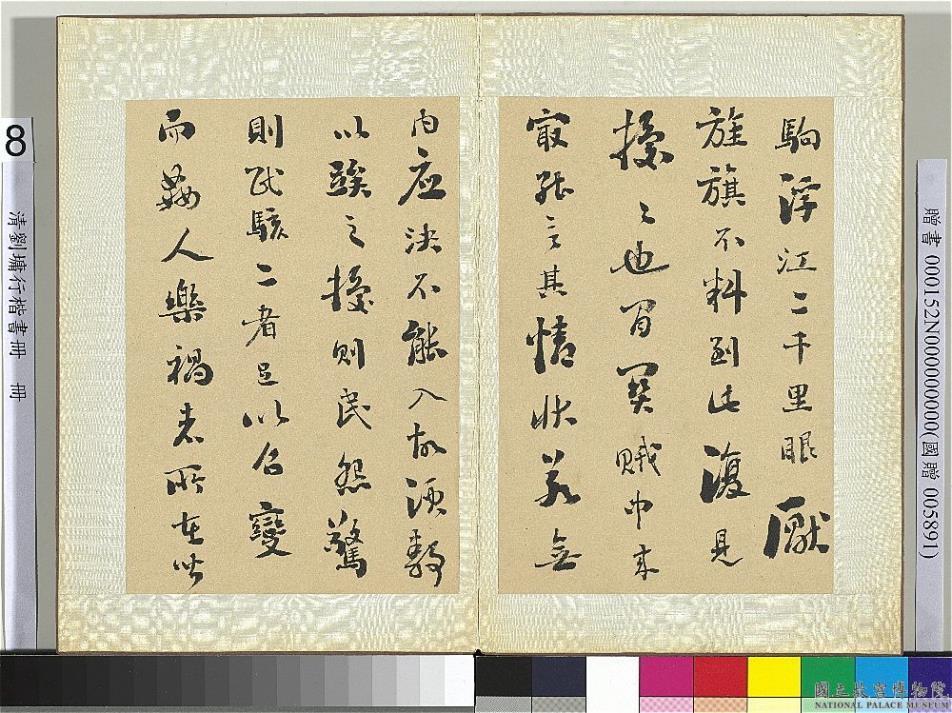 駒浮江二千里眼厭
旌旗不料到此復見
擾〻也間関賊中來
最能言其情狀若無
内应決不能入故須
以之擾則民怨驚
則民駭二者足以召變
而姦人樂禍者所在皆
8
清劉墉行楷書冊 冊
贈書 000152N000000000(國贈 005891)
國立故宮博物院
NATIONAL PALACE MUSEUM